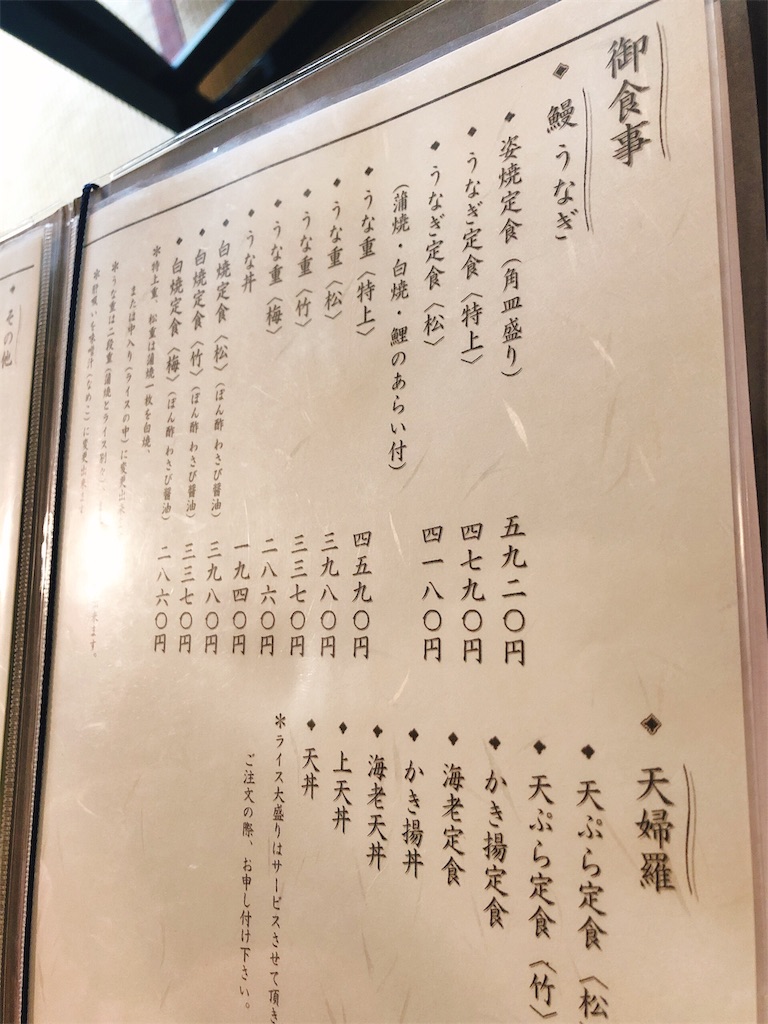 御食事
鰻 うなぎ
姿焼定食(角皿盛り) 五九二〇円
うなぎ定食〈特上〉 四七九〇円
うなぎ定食〈松〉 四一八〇円
(蒲焼・白焼・鯉のあらい付)
うな重〈特上〉 四五九〇円
うな重〈松〉 三九八〇円
うな重〈竹〉 三三七〇円
うな重〈梅〉 二八六〇円
うな丼 一九四〇円
白焼定食〈松〉(ぽん酢 わさび醤油) 三九八〇円
白焼定食〈竹〉(ぽん酢 わさび醤油) 三三七〇円
白焼定食〈梅〉(ぽん酢 わさび醤油) 二八六〇円
＊特上重、松重は蒲焼一枚を白焼、
または中入り(ライスの中)に変更出来
＊うな重は二段重(蒲焼とライス別々)
＊肝吸いを味噌汁(なめこ)に変更出来ます
来ます。
天婦羅
天ぷら定食〈松
天ぷら定食〈竹〉
かき揚定食
海老定食
かき揚丼
海老天丼
上天丼
天丼
＊ライス大盛りはサービスさせて頂き
ご注文の際、お申し付け下さい。
その他